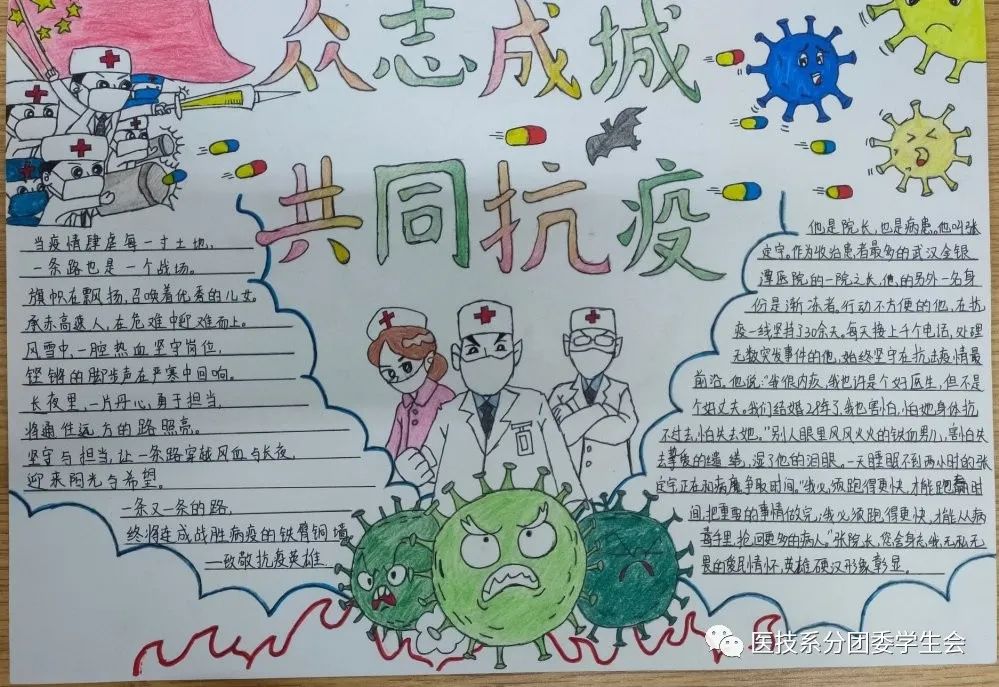 众志成城
共同抗疫
当疫情肆虐每一寸土地，
一条路也是一个战场。
旗帜在飘扬，召唤着优秀的儿女。
承赤高速人，在危难中迎难而上。
风雪中，一腔热血坚守岗位，
铿锵的脚步声在严寒中回响。
长夜里，一片丹心，勇于担当，
将通往远方的路照亮。
坚守与担当，让一条路穿越风血与长夜，
迎来阳光与希望。
一条又一条的路，
终将连成战胜病疫的铁臂铜墙
一致敬抗疫英雄
他是院长，也是病患。他叫张
定宇。作为收治患者最多的武汉金银
潭医院的一院之长，他的另外一名身
份是渐冻者，行动不方便的他，在抗
疫一线坚持了30余天。每天接上千个电话，处理
无数突发事件的他，始终坚守在抗击疫情最
前沿。他说："我很内疚，我也许是个好医生，但不是
个好丈夫。我们结婚28年了，我也害怕，怕她身体抗
不过去，怕失去她。"别人眼里风风火火的铁血男儿，害怕失
去挚爱的 ，湿了他的泪眼。一天睡眠不到两小时的张
定宇正在和病魔争取时间。"我必须跑得更快，才能跑 时
间，把重要的事情做完；我必须跑得更快，才能从病
毒手里，抢回更多的病人。"张院长，您舍身忘我，无私无
畏的爱民情怀，英雄硬汉形象彰显。
医技系分团委学生会